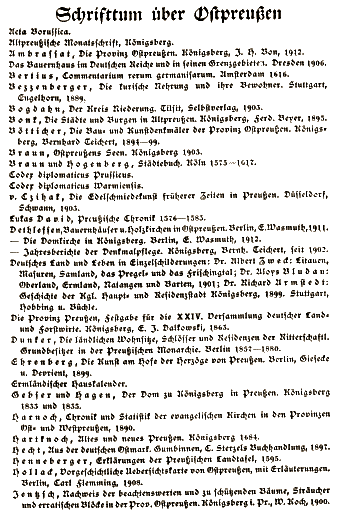 Schrifttum über Ostpreußen
Acta Borussica.
Altpreußische Monatsschrift, Königsberg.
Ambrassat, Die Provinz Ostpreußen. Königsberg, J. H. Bon, 1912.
Das Bauernhaus im Deutschen Reiche und in seinen Grenzgebieten. Dresden 1906.
Bertius, Commentarium rerum germanisarum. Amsterdam 1616.
Bezzenberger, Die kurische Nehrung und ihre Bewohner. Stuttgart,
Engelhorn, 1889.
Bogdahn, Der Kreis Niederung. Tilsit, Selbstverlag, 1903.
Bonk, Die Städte und Burgen in Altpreußen. Königsberg, Ferd. Beyer, 1895.
Bötticher, Die Bau- und Kunstdenkmäler der Provinz Ostpreußen. Königs-
berg, Bernhard Teichert, 1894—99.
Braun, Ostpreußens Seen. Königsberg 1903.
Braun und Hogenberg, Städtebuch. Köln 1575—1617.
Codex diplomaticus Prussicus.
Codex diplomaticus Warmiensis.
v. Czihak, Die Edelschmiedekunst früherer Zeiten in Preußen. Düsseldorf,
Schwann, 1903.
Lukas David, Preußische Chronik 1576—1583.
Dethlefsen, Bauernhäuser u. Holzkirchen in Ostpreußen. Berlin, E. Wasmuth, 1911.
— Die Domkirche in Königsberg. Berlin, E. Wasmuth, 1912.
— Jahresberichte der Denkmalpflege. Königsberg, Bernh. Teichert, seit 1902.
Deutsches Land und Leben in Einzelschilderungen: Dr. Albert Zweck: Litauen,
Masuren, Samland, das Pregel- und das Frischingtal; Dr. Aloys Bludau:
Oberland, Ermland, Natangen und Barten, 1901; Dr. Richard Armstedt:
Geschichte der Kgl. Haupt- und Residenzstadt Königsberg, 1899. Stuttgart,
Hobbing u. Büchle.
Die Provinz Preußen, Festgabe für die XXIV. Versammlung deutscher Land-
und Forstwirte. Königsberg, E. J. Dalkowski, 1863.
Duncker, Die ländlichen Wohnsitze, Schlösser und Residenzen der Ritterschaftl.
Grundbesitzer in der Preußischen Monarchie. Berlin 1857—1880.
Ehrenberg, Die Kunst am Hofe der Herzöge von Preußen. Berlin, Giesecke
u. Devrient, 1899.
Ermländischer Hauskalender.
Gebser und Hagen, Der Dom zu Königsberg in Preußen. Königsberg
1835 und 1833.
Harnoch, Chronik und Statistik der evangelischen Kirchen in den Provinzen
Ost- und Westpreußen, 1890.
Hartknoch, Altes und neues Preußen. Königsberg 1684.
Hecht, Aus der deutschen Ostmark. Gumbinnen, C. Sterzels Buchhandlung, 1897.
Henneberger, Erklärungen der Preußischen Landtafel, 1595.
Hollack, Vorgeschichtliche Uebersichtskarte von Ostpreußen, mit Erläuterungen.
Berlin, Carl Flemming, 1908.
Jentzsch, Nachweis der beachtenswerten und zu schützenden Bäume, Sträucher
und erratischen Blöcke in der Prov. Ostpreußen. Königsberg i. Pr., W. Koch, 1900.